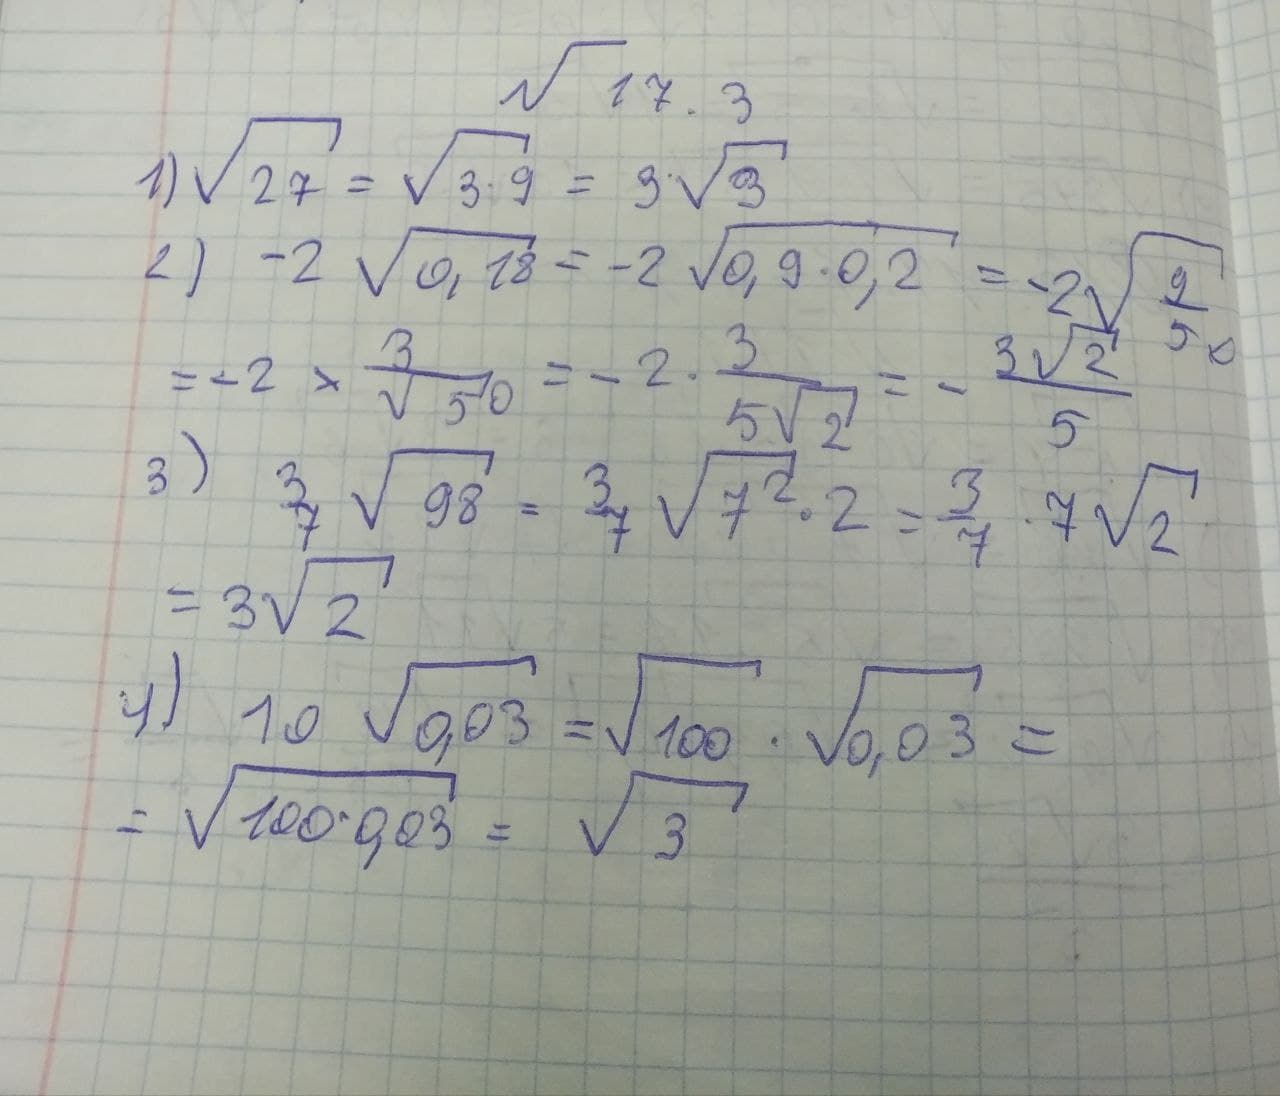 √17.3
1) √27 = √3·9 = 3·√3
2) -2 √0,18 = -2 √0,9·0,2 = -2√9/50
= -2 × 3/√50 = -2 · 3/5√2 = - 3√2/5
3) 3/7 √98 = 3/7 √7²·2 = 3/7 · 7√2
= 3√2
4) 10 √0,03 = √100 · √0,03 =
= √100·0,03 = √3